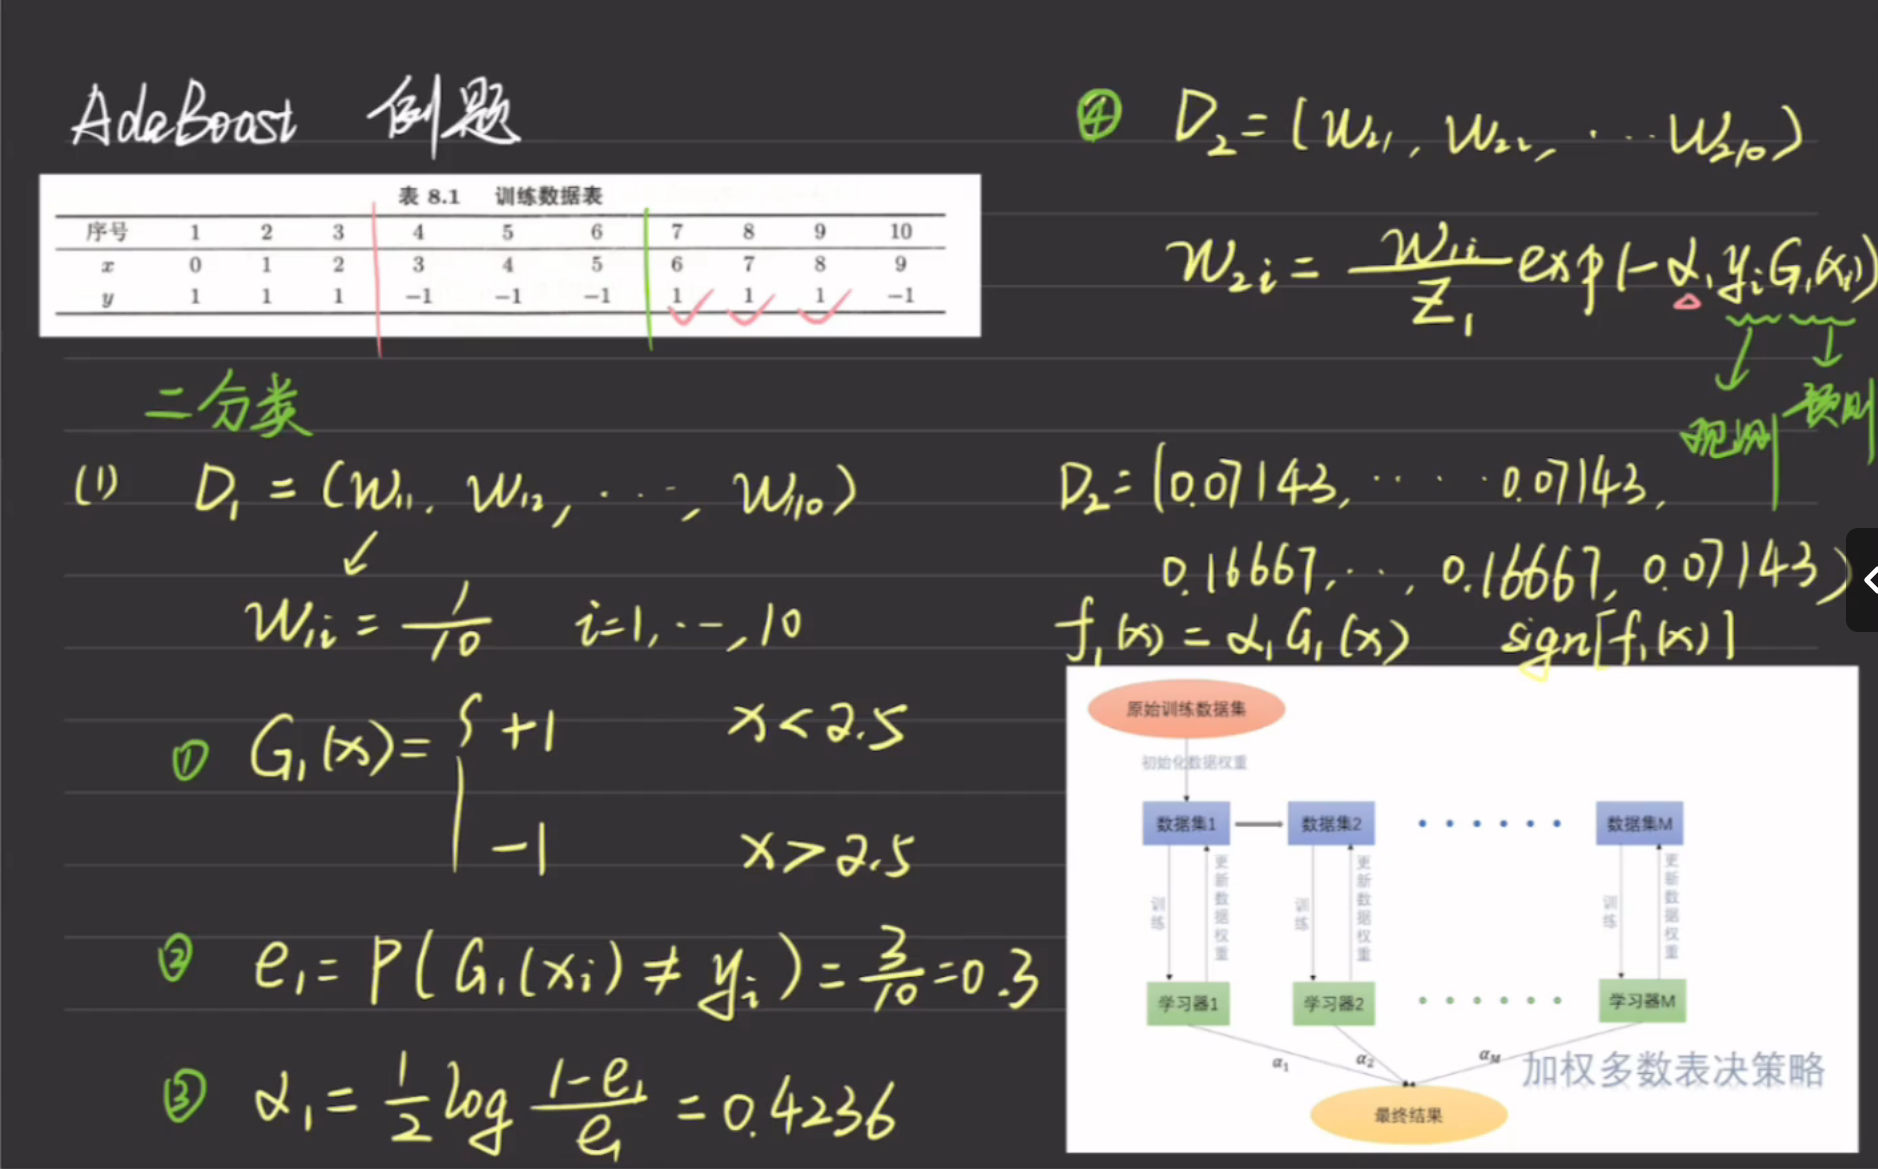 AdaBoost 例题
表 8.1 训练数据表
序号 1 2 3 4 5 6 7 8 9 10
x 0 1 2 3 4 5 6 7 8 9
y 1 1 1 −1 −1 −1 1 1 1 −1
二分类
(1) D₁ = (w₁₁, w₁₂, ⋯, w₁₁₀)
w₁ᵢ = 1/10 i=1,⋯,10
① G₁(x) = { +1 x < 2.5
−1 x > 2.5
② e₁ = P(G₁(xᵢ) ≠ yᵢ) = 3/10 = 0.3
③ α₁ = 1/2 log (1-e₁)/e₁ = 0.4236
④ D₂ = (w₂₁, w₂₂, ⋯ w₂₁₀)
w₂ᵢ = w₁ᵢ/Z₁ exp(-α₁yᵢG₁(xᵢ))
观测 预测
D₂ = (0.07143, ⋯ 0.07143,
0.16667, ⋯, 0.16667, 0.07143)
f₁(x) = α₁G₁(x) sign[f₁(x)]
原始训练数据集
初始化数据权重
数据集1 数据集2 数据集M
训练 更新数据权重 训练 更新数据权重 训练 更新数据权重
学习器1 学习器2 学习器M
α₁ α₂ α_M
加权多数表决策略
最终结果